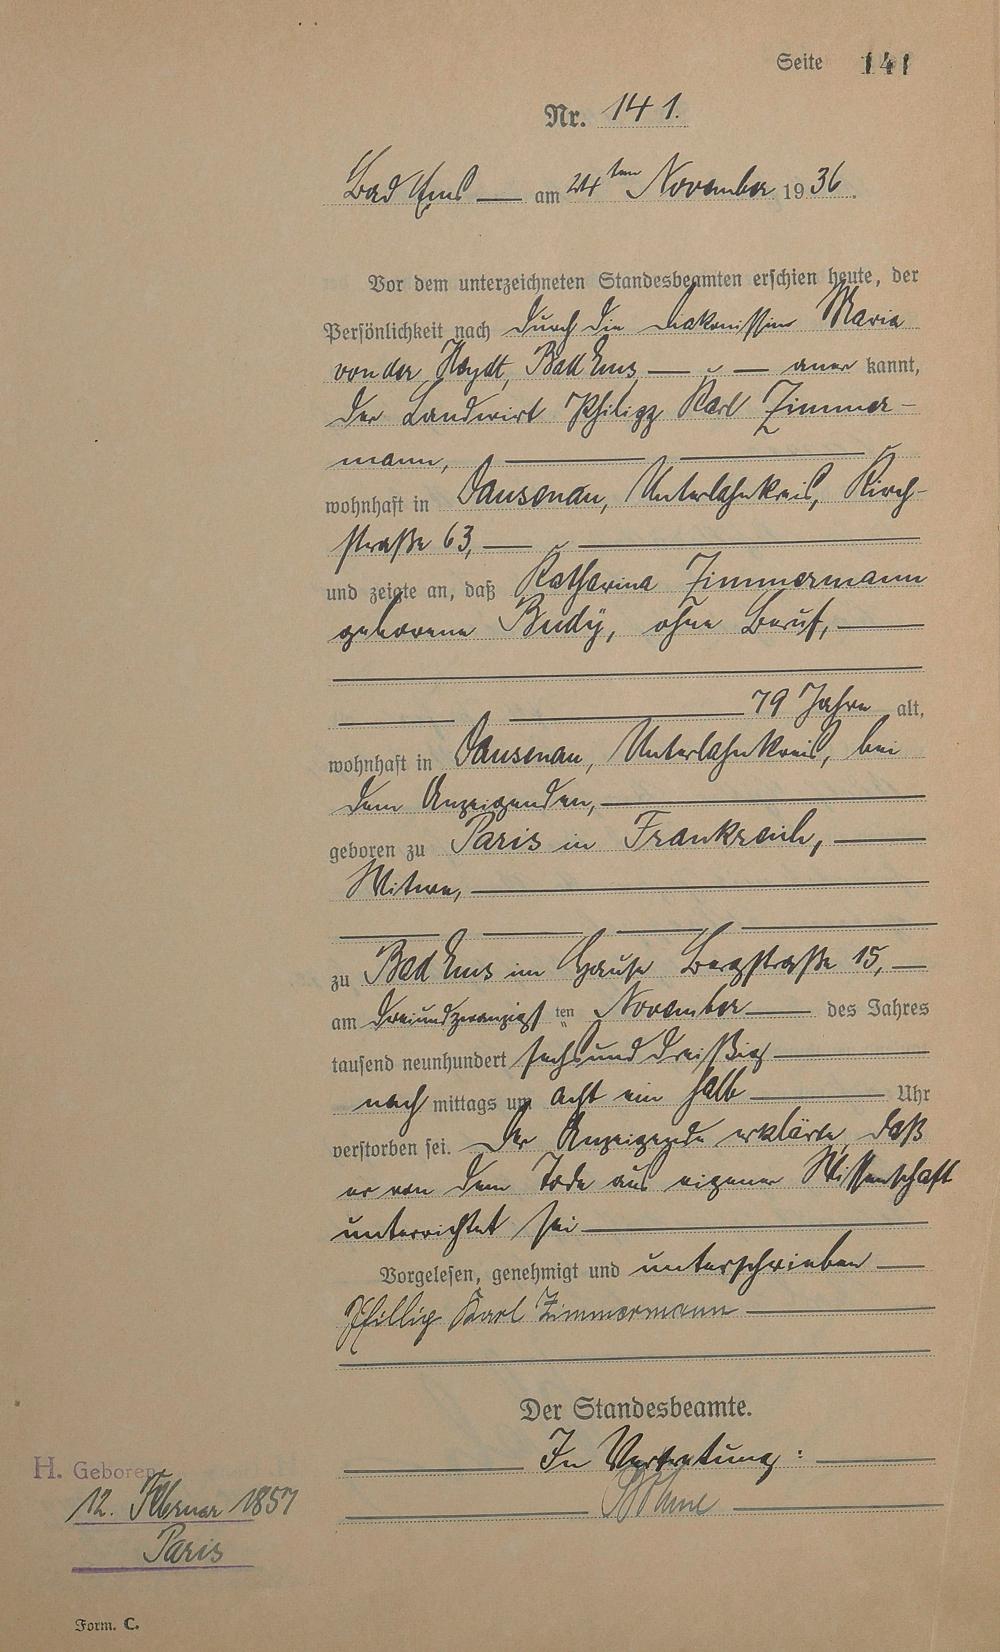 Seite 141
Nr. 141.
Bad Ems am 24ten November 1936.
Vor dem unterzeichneten Standesbeamten erschien heute, der
Persönlichkeit nach durch die Diakonissin Maria
von der Heydt, Bad Ems aner kannt,
der Landwirt Philipp Karl Zimmer-
mann,
wohnhaft in Dausenau, Unterlahnkreis, Kirch-
straße 63,
und zeigte an, daß Katharina Zimmermann
geborene Budÿ, ohne Beruf,
79 Jahre alt,
wohnhaft in Dausenau, Unterlahnkreis, bei
dem Anzeigenden,
geboren zu Paris in Frankreich,
Witwe,
zu Bad Ems im Hause Bergstraße 15,
am dreiundzwanzigsten November des Jahres
tausend neunhundert sechsunddreißig
nach mittags um acht ein halb Uhr
verstorben sei. Der Anzeigende erklärte, daß
er von dem Tode aus eigener Wissenschaft
unterrichtet sei
Vorgelesen, genehmigt und unterschrieben
Phillip Karl Zimmermann
Der Standesbeamte.
In Vertretung:
H. Geboren
12. Februar 1857
Paris
Form. C.